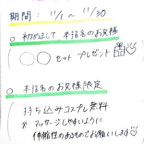 期間: 11/1 〜 11/30
○ 初めまして 本指名のお客様
○○セット プレゼント
○ 本指名のお客様限定
持ち込みコスプレ無料
※ マッサージしやすいように
伸縮性のあるものでお願いします